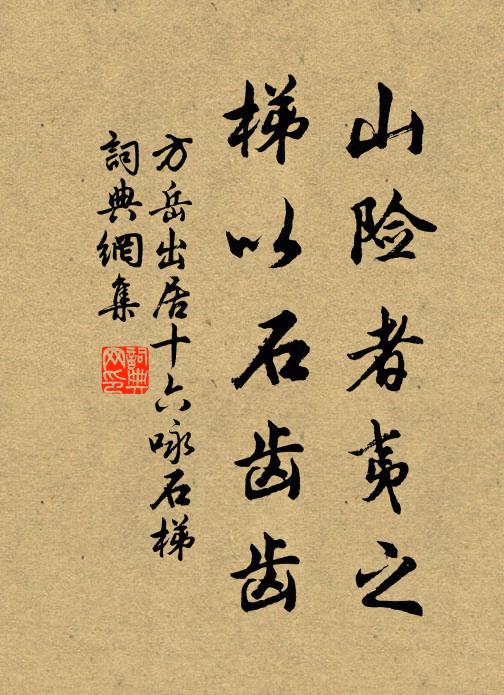 山险者夷之
梯以石齿齿
方岳出居十六咏石梯
詞典網集
詞典
网印